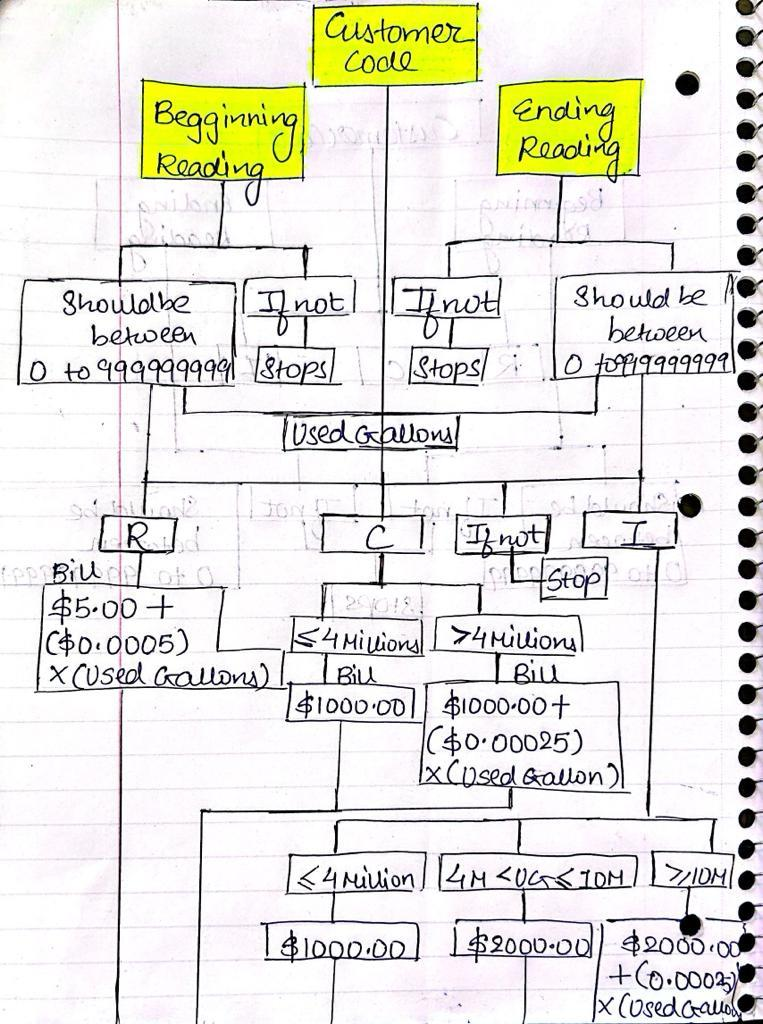 Customer
Code
Begginning
Reading
Ending
Reading
Should be
between
0 to 999999999
If not
Stops
If not
Stops
Should be
between
0 to 999999999
Used Gallons
R
C
If not
Stop
I
Bill
$5.00 +
($0.0005)
X(Used Gallons)
≤4Millions
Bill
$1000.00
>4Millions
Bill
$1000.00+
($0.00025)
X(Used Gallon)
≤4Million
$1000.00
4M <UG≤ 10M
$2000.00
≥10M
$2000.00
+(0.00025)
X(Used Gallon